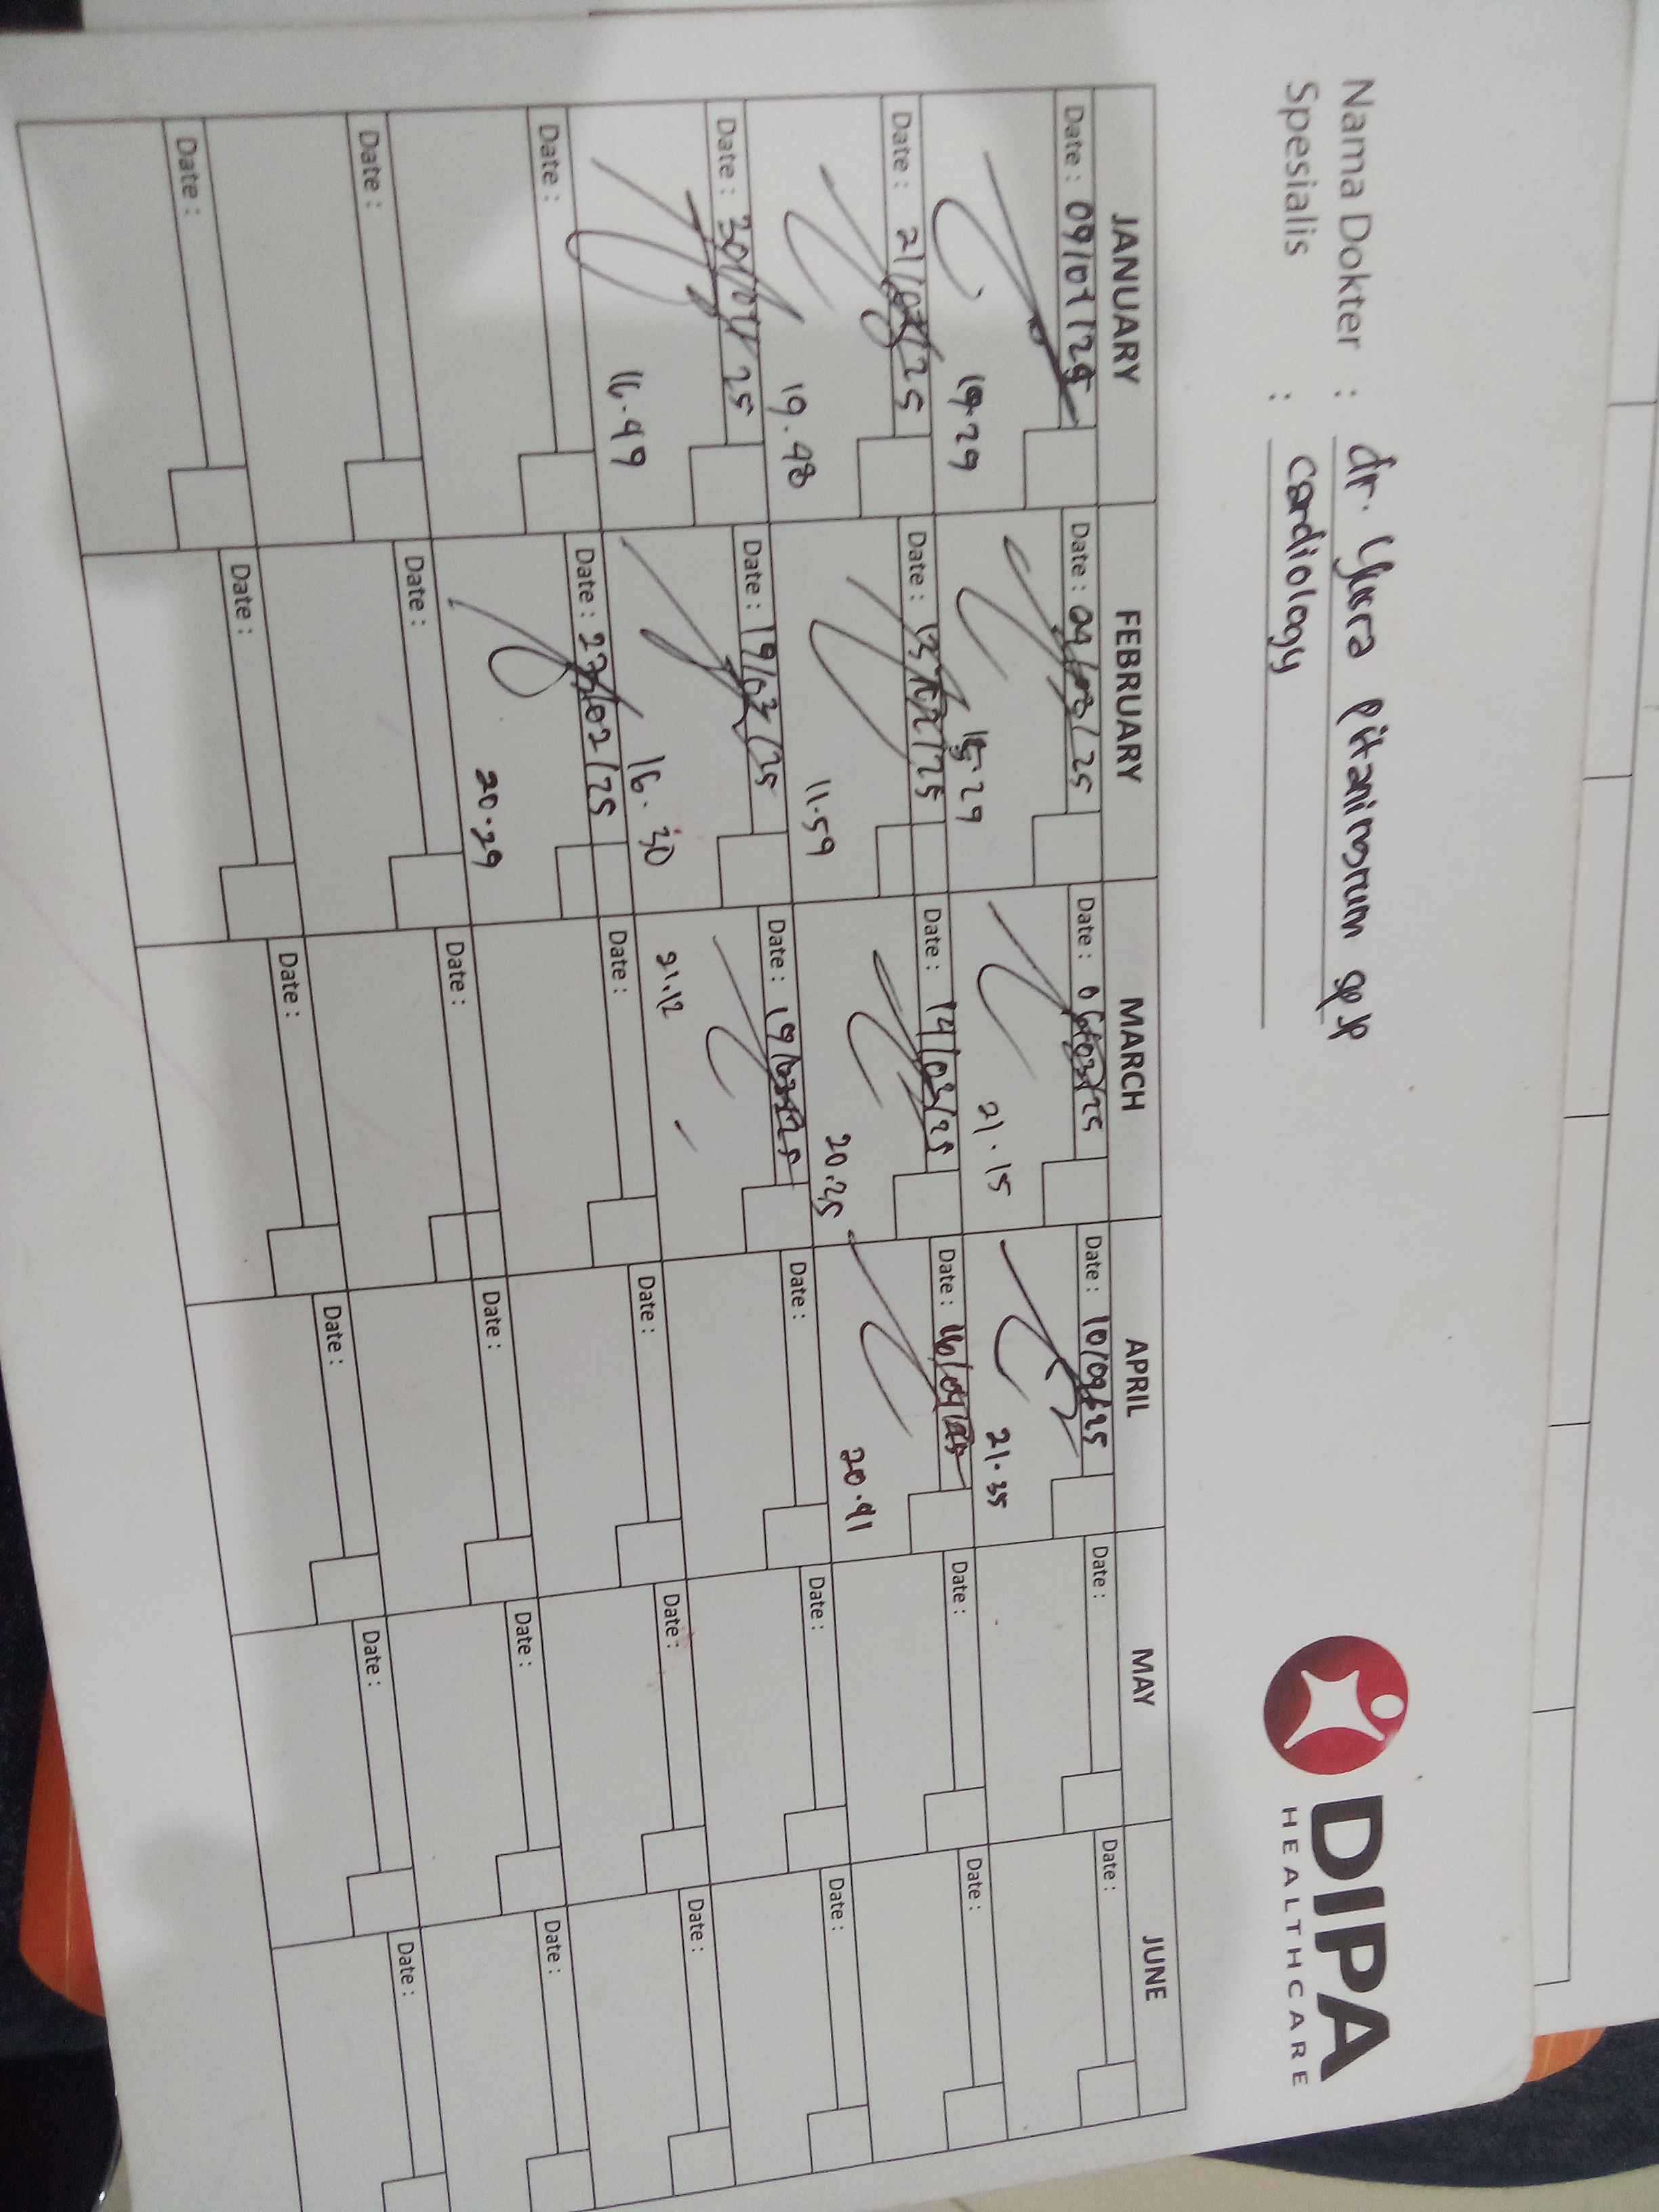 Nama Dokter : dr. Yusra Pitaningrum Sp.JP
Spesialis : Cardiology
DIPA
HEALTHCARE
JANUARY FEBRUARY MARCH APRIL MAY JUNE
Date : 09/01/25 Date : Date : 06/03/25 Date : Date : Date :
19.29 15.29 21.15 21.35
Date : Date : Date : 14/03/25 Date : Date : Date :
19.48 11.59 20.25 20.41
Date : Date : 19/02/25 Date : 19/03/25 Date : Date : Date :
16.49 16.30 21.12
Date : Date : Date : Date : Date : Date :
20.29
Date : Date : Date : Date : Date : Date :
Date : Date : Date : Date : Date : Date :